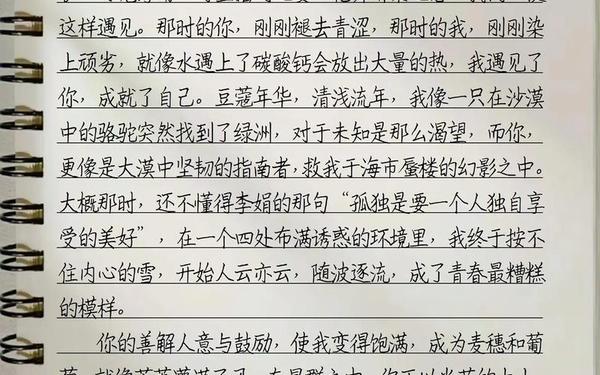 这样遇见。那时的你，刚刚褪去青涩，那时的我，刚刚染
上顽劣，就像水遇上了碳酸钙会放出大量的热，我遇见了
你，成就了自己。豆蔻年华，清浅流年，我像一只在沙漠
中的骆驼突然找到了绿洲，对于未知是那么渴望，而你，
更像是大漠中坚韧的指南者，救我于海市蜃楼的幻影之中。
大概那时，还不懂得李娟的那句“孤独是要一个人独自享
受的美好”，在一个四处布满诱惑的环境里，我终于按不
住内心的雪，开始人云亦云，随波逐流，成了青春最糟糕
的模样。
你的善解人意与鼓励，使我变得饱满，成为麦穗和葡